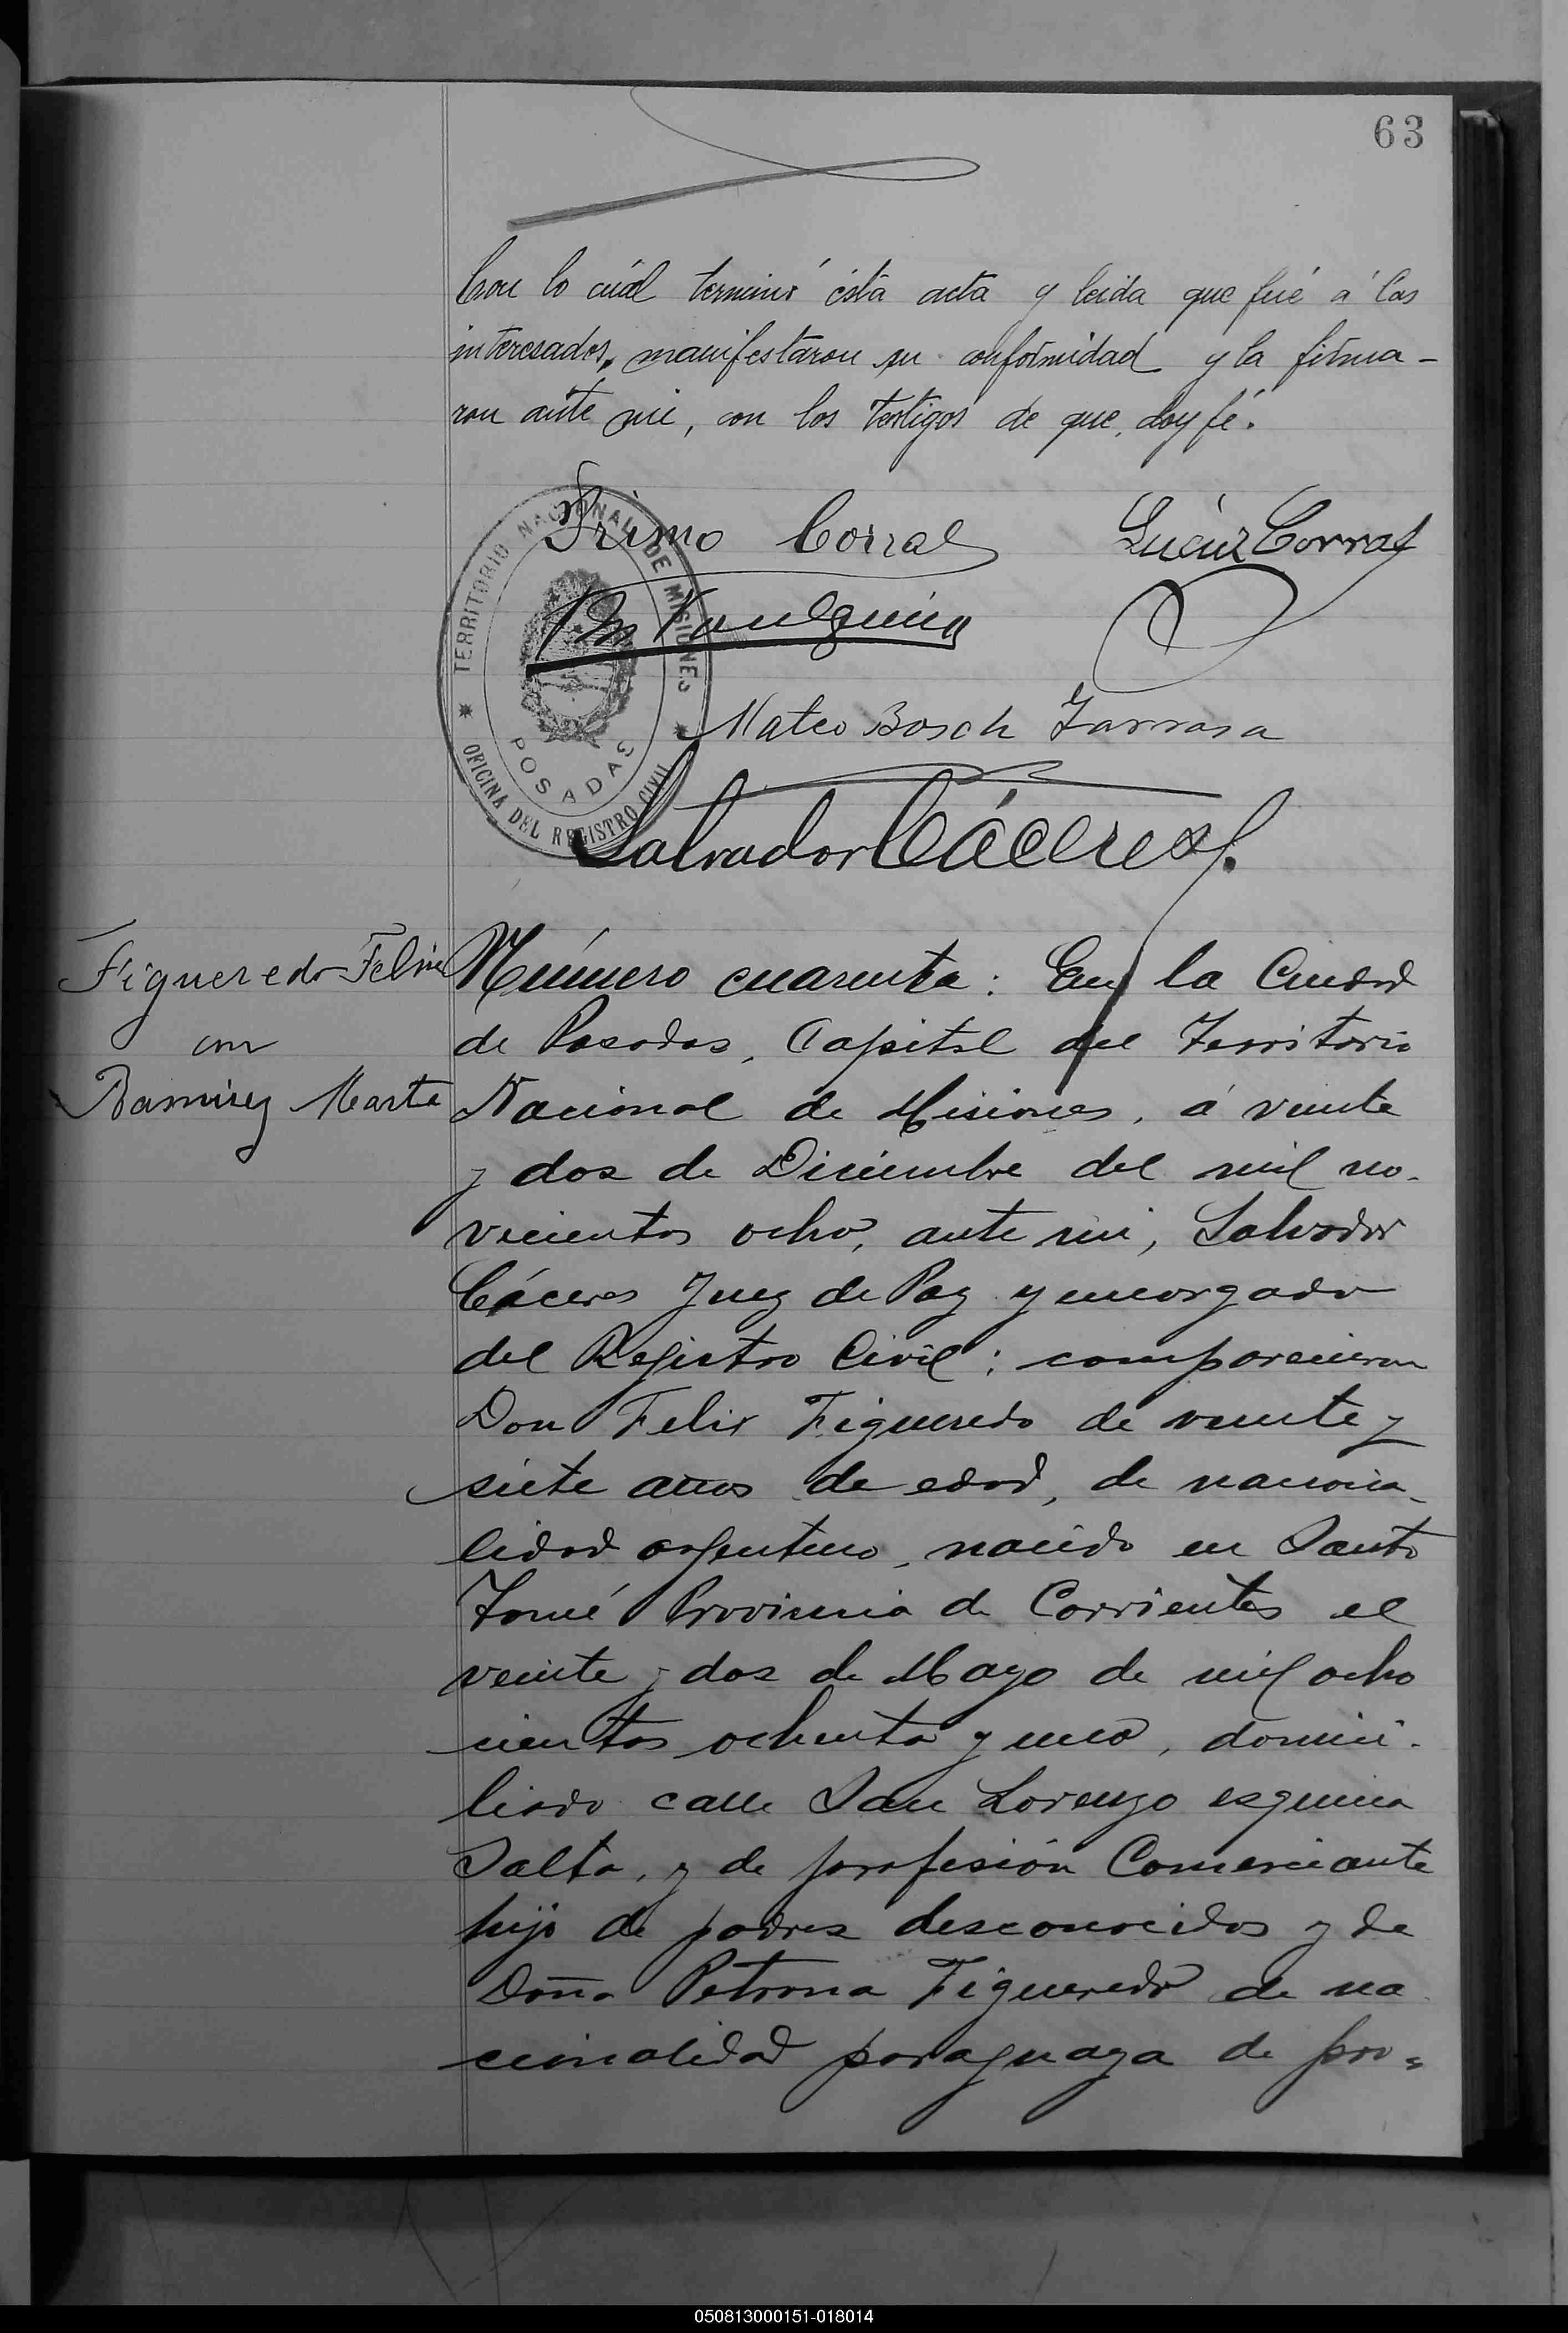 63
Con lo cuál terminó ésta acta y leida que fué á los
interesados, manifestaron su conformidad y la firma-
ron ante mi, con los testigos de que, doy fé.
Primo Corral
Corral
TERRITORIO NACIONAL DE MISIONES
POSADAS
OFICINA DEL REGISTRO CIVIL
Mateo Bosch
Salvador Cáceres
Figueredo Felix
con
Ramirez Marta
Número cuarenta: En la Ciudad
de Posadas, Capital del Territorio
Nacional de Misiones, á veinte
y dos de Diciembre del mil no-
vecientos ocho, ante mi, Salvador
Cáceres Juez de Paz y encargado
del Registro Civil; comparecieron
Don Felix Figueredo de veinte y
siete años de edad, de naciona-
lidad argentino, nacido en Santo
Tomé Provincia de Corrientes el
veinte y dos de Mayo de mil ocho
cientos ochenta y uno, domici-
liado calle San Lorenzo esquina
Salta, y de profesión Comerciante
hijo de padres desconocidos y de
Doña Petrona Figueredo de na
cionalidad paraguaya de pro=
050813000151-018014